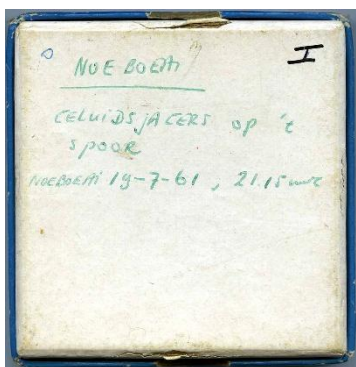 I
NOEBOEM
GELUIDSJAGERS op 't
spoor
NOEBOEM 19-7-61, 21.15 uur